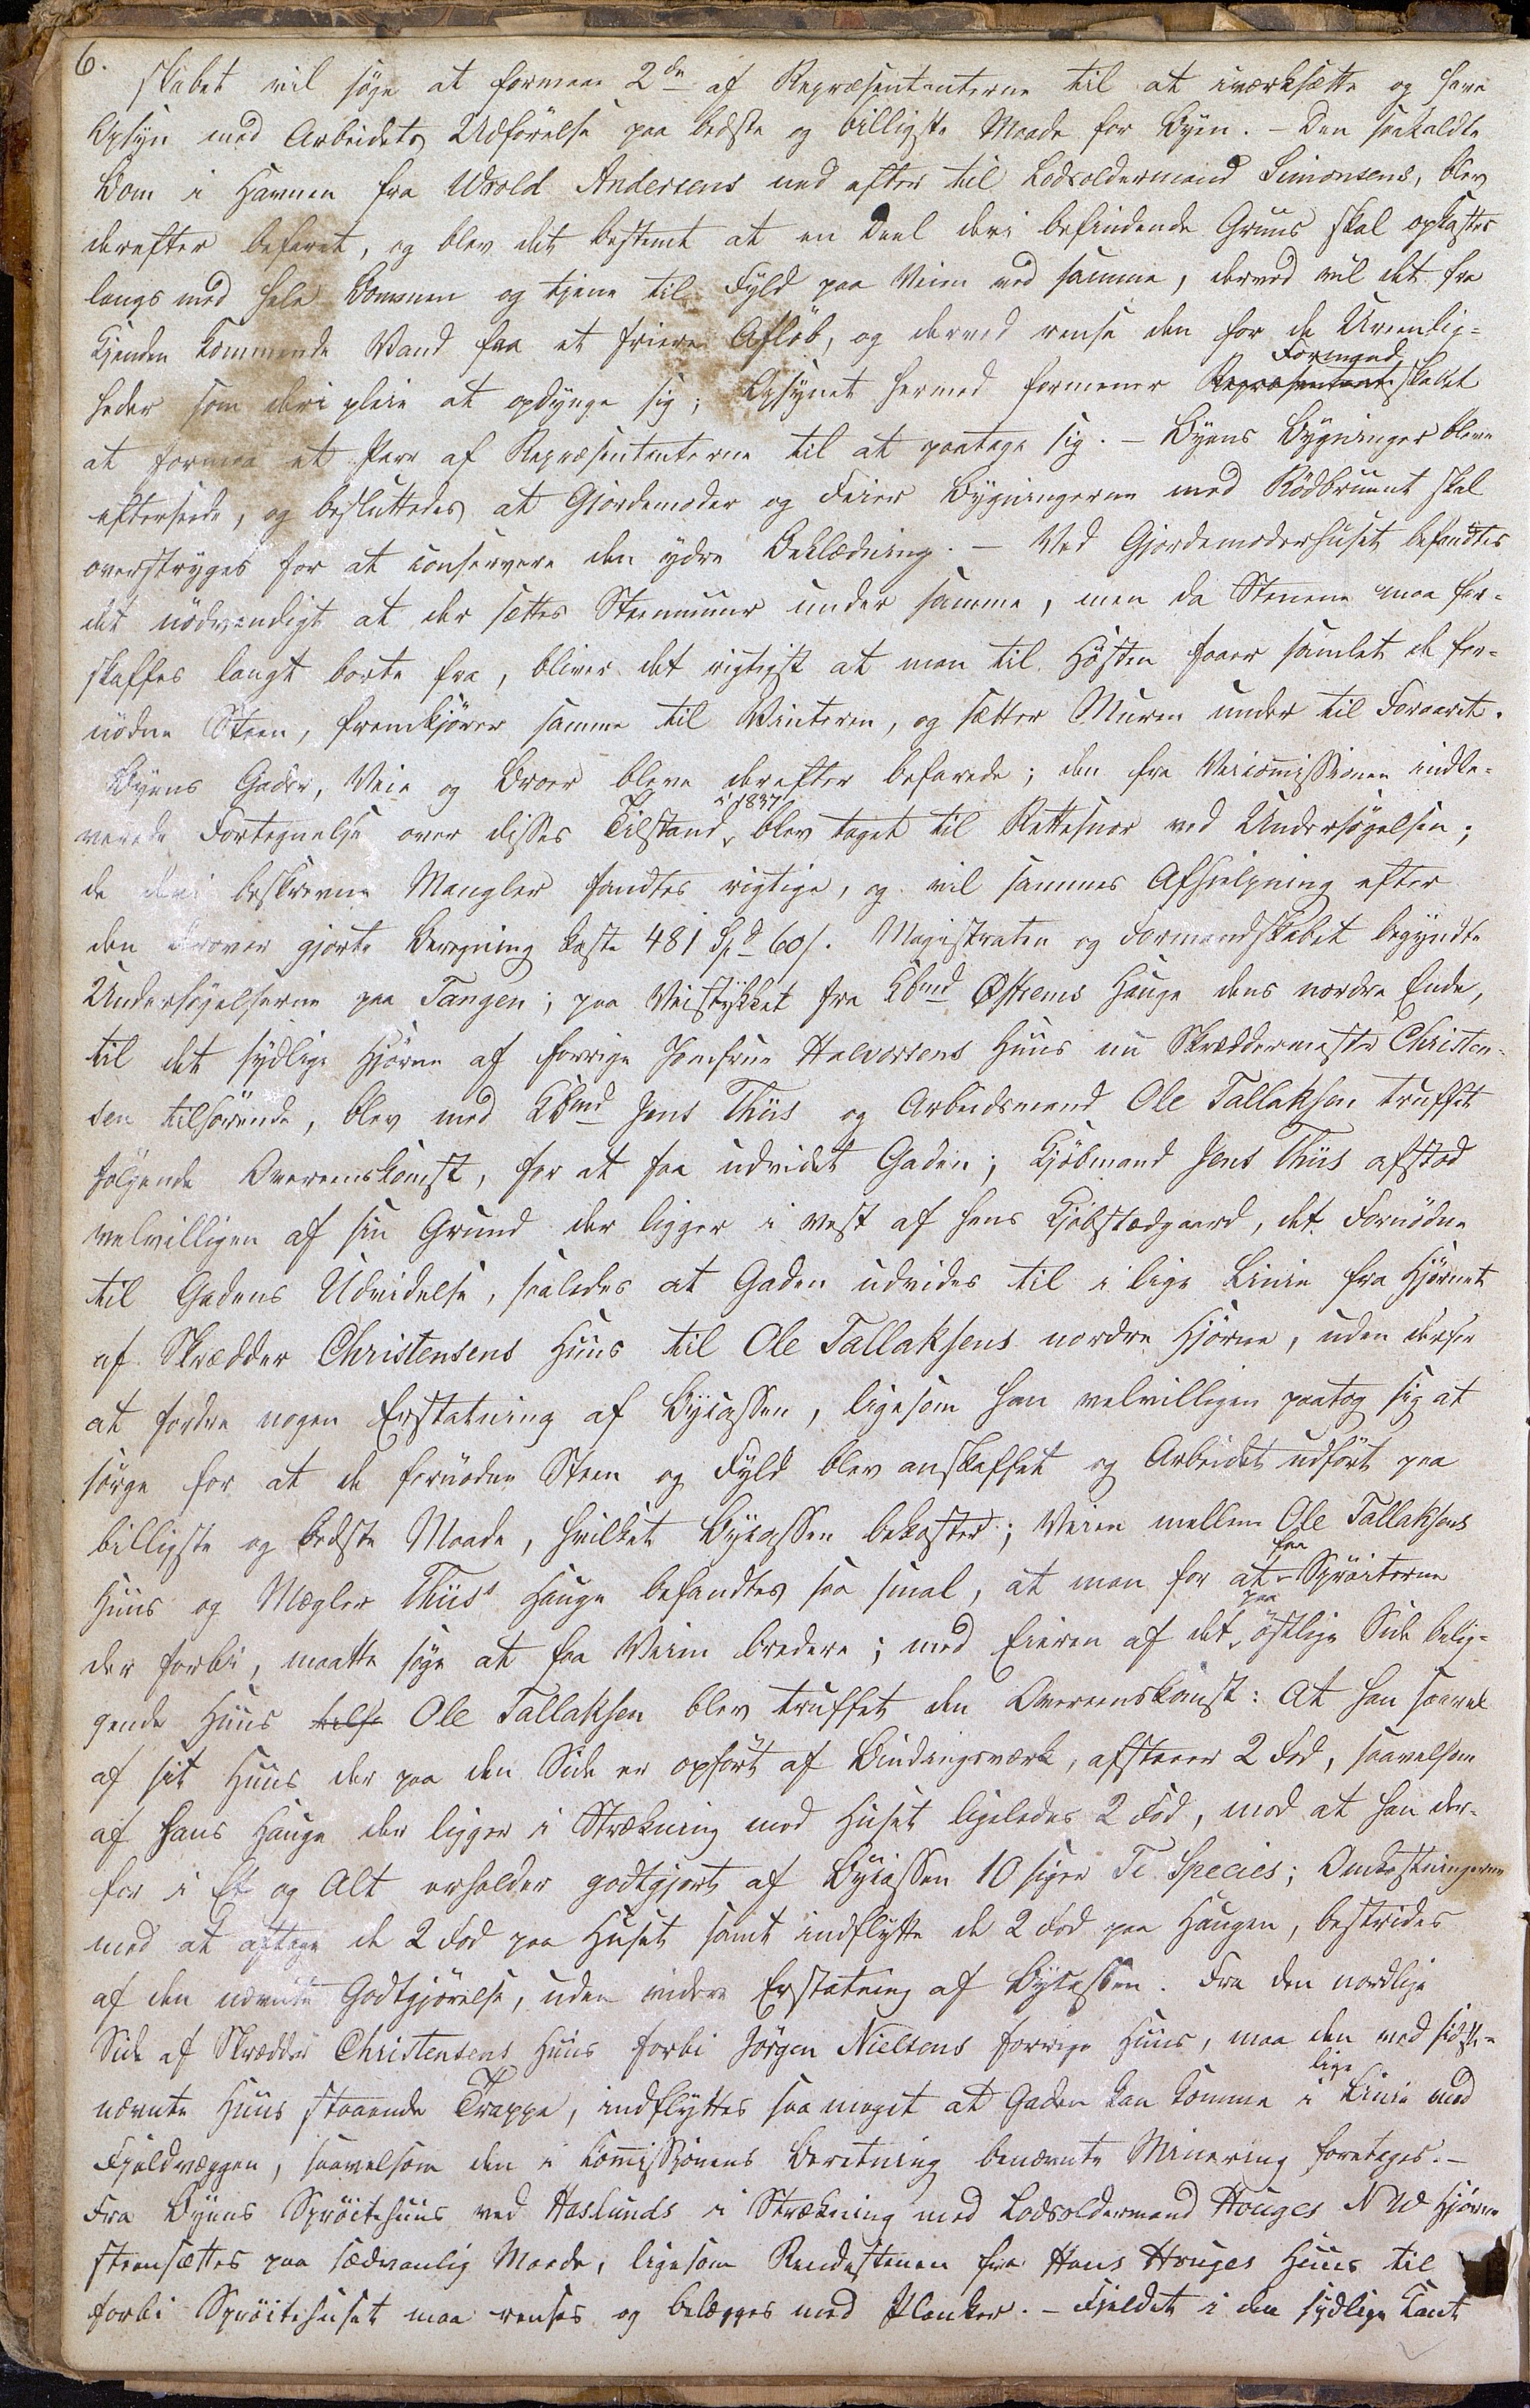 6.
skabet vil søge at formaae 2de af Repræsentanterne til at iværksætte og have
Opsyn med Arbeidets Udførelse paa bedste og billigste Maade for Byen. – Den saakaldte
Dom i Havnen fra Wrold Andersens ned efter til Lodsoldermand Simonsens, blev
derefter befaret, og blev det bestemt at en Deel deri befindende Gruus skal opkastes
langs med hele Dommen og tjene til Fyld paa Veien ved samme, derved vil det fra
Kjenden kommende Vand faa et friere Afløb, og derved rense den for de Ureenlig=
heder som deri pleie at opdynge sig; Opsynet hermed formener Formandskabet
at formaa et Par af Repræsentanterne til at paatage sig. – Byens Bygninger bleve
efterseede, og besluttedes at Gjordemoder og Feier Bygningerne med Rødbruunt skal
overstryges for at conservere den ydre Beklædning. – Ved Gjordemoderhuset befandtes
det nödvendigt at der sættes Steenmuur under samme, men da Stenene maa for=
skaffes langt borte fra, bliver det rigtigst at man til Høsten faaer samlet de for=
nödne Steen, fremkjører samme til Vinteren, og sætter Muren under til Foraaret.
Byens Gader, Veie og Broer bleve derefter befarede; den fra Veicommissionen indle=
verede Fortegnelse over disses Tilstand i 1837 blev taget til Rettesnor ved Undersøgelsen;
de deri beskrevne Mangler fandtes rigtige, og vil sammes Afhjelpning efter
den derover gjorte Beregning koste 481 Spd 60 s. Magistraten og Formandskabet begyndte
Undersøgelserne paa Tangen; paa Veistykket fra Kbmd Østrems Hauge dens nordre Ende,
til det sydlige Hjørne af forrige Jomfrue Halvorsens Huus nu Skræddermester Christen=
sen tilhørende, blev med Kbmd Jens Thiis og Arbeidsmand Ole Tallaksen truffet
følgende Overeenskomst, for at faa udvidet Gaden; Kjøbmand Jens Thiis afstod
velvilligen af sin Grund der ligger i vest af hans Kjøbstædgaard, det Fornødne
til Gadens Udvidelse, saaledes at Gaden udvides til i lige Linie fra Hjørnet
af Skrædder Christensens Huus til Ole Tallaksens nordre Hjørne, uden derfor
at fordre nogen Erstatning af Bycassen, ligesom han velvilligen paatog sig at
sørge for at de fornødne Steen og Fyld blev anskaffet og Arbeidet udført paa
billigste og bedste Maade, hvilket Bycassen bekoster; Veien mellem Ole Tallaksens
Huus og Mægler Thiis' Hauge befandtes saa smal, at man for at faa Sprøiterne
der forbi, maatte søge at faa Veien bredere; med Eieren af det paa østlige Side belig=
gende Huus Ole Tallaksen blev truffet den Overeenskomst: At han saavel
af sit Huus der paa den Side er opført af Bindingsværk, afstaaer 2 Fod, saavelsom
af hans Hauge der ligger i Strækning med Huset ligeledes 2 Fod, mod at han der=
for i Et og Alt erholder godtgjort af Bycassen 10 siger Ti Species; Omkostningerne
med at aftage de 2 Fod paa Huset samt indflytte de 2 Fod paa Haugen, bestrides
af den nævnte Godtgjørelse, uden videre Erstatning af Bycassen. Fra den nordlige
Side af Skrædder Christensens Huus forbi Jörgen Nielsens forrige Huus, maa den ved sidst=
nævnte Huus staaende Trappe, indflyttes saa meget at Gaden kan komme i lige Linie med
Fjeldvæggen, saavelsom den i Commissionens Beretning benævnte Minering foretages. –
Fra Byens Sprøitehuus ved Haslunds i Strækning med Lodsoldermand Houges NW Hjørne
steensættes paa sædvanlig Maade, ligesom Rendestenen fra Hans Houges Huus til
forbi Sprøitehuset maa renses og belægges med Planker. – Fjeldet i den sydlige Kant